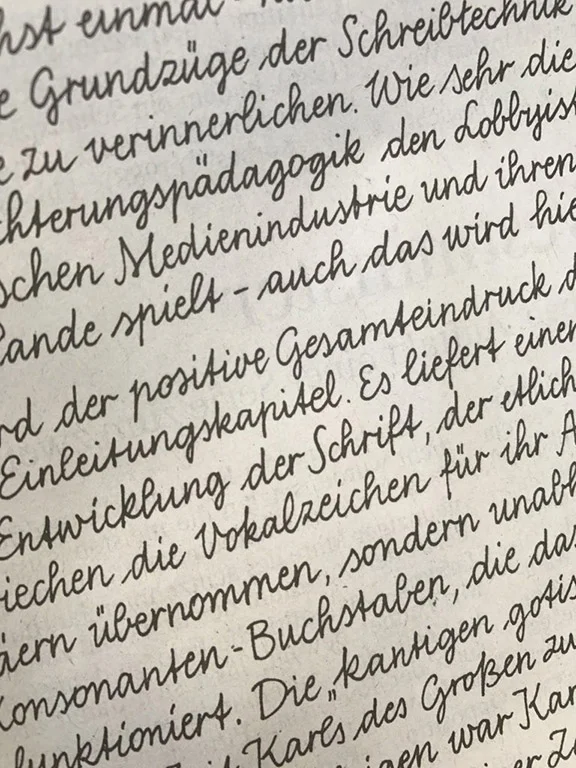 hst einmal
e Grundzüge der Schreibtechnik
e zu verinnerlichen. Wie sehr die
chterungspädagogik den Lobbyist
schen Medienindustrie und ihren
Lande spielt – auch das wird hie
rd der positive Gesamteindruck d
Einleitungskapitel. Es liefert einen
Entwicklung der Schrift, der etlich
iechen die Vokalzeichen für ihr A
äern übernommen, sondern unabh
Konsonanten-Buchstaben, die das
funktioniert. Die „kantigen gotis
Karls des Großen zu
igen war Kar